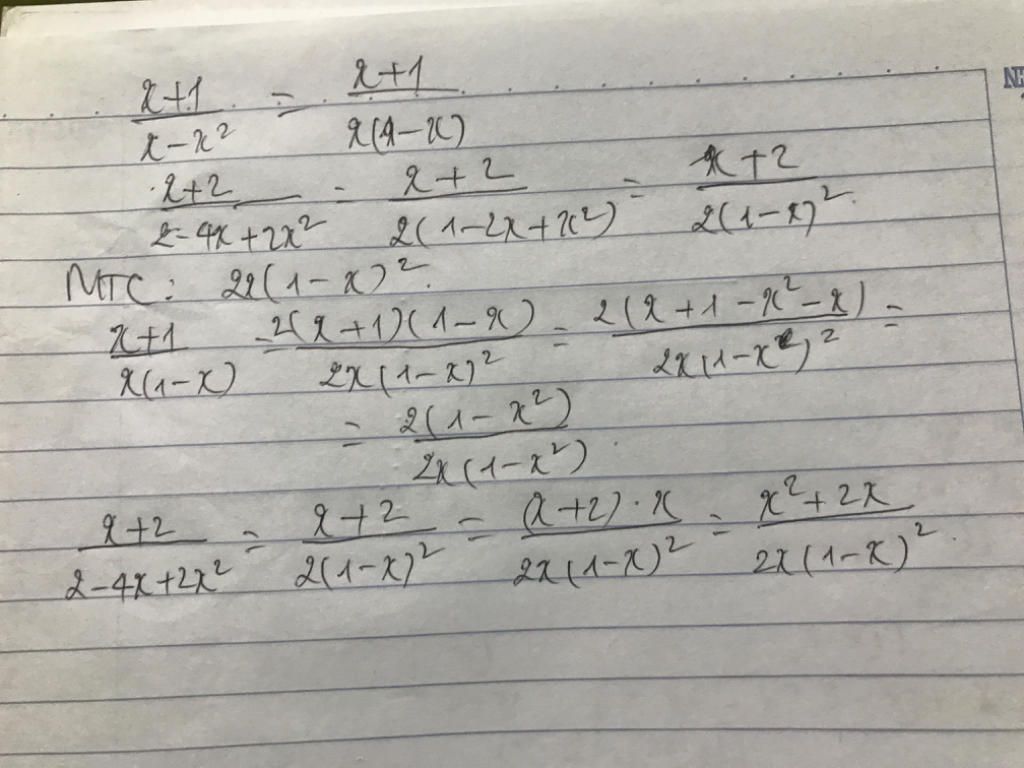 NH
(x+1)/(x-x²) = (x+1)/(x(1-x))
(x+2)/(2-4x+2x²) = (x+2)/(2(1-2x+x²)) = (x+2)/(2(1-x)²).
MTC: 2x(1-x)².
(x+1)/(x(1-x)) = (2(x+1)(1-x))/(2x(1-x)²) = (2(x+1-x²-x))/(2x(1-x)²) =
= (2(1-x²))/(2x(1-x²)).
(x+2)/(2-4x+2x²) = (x+2)/(2(1-x)²) = ((x+2).x)/(2x(1-x)²) = (x²+2x)/(2x(1-x)²).